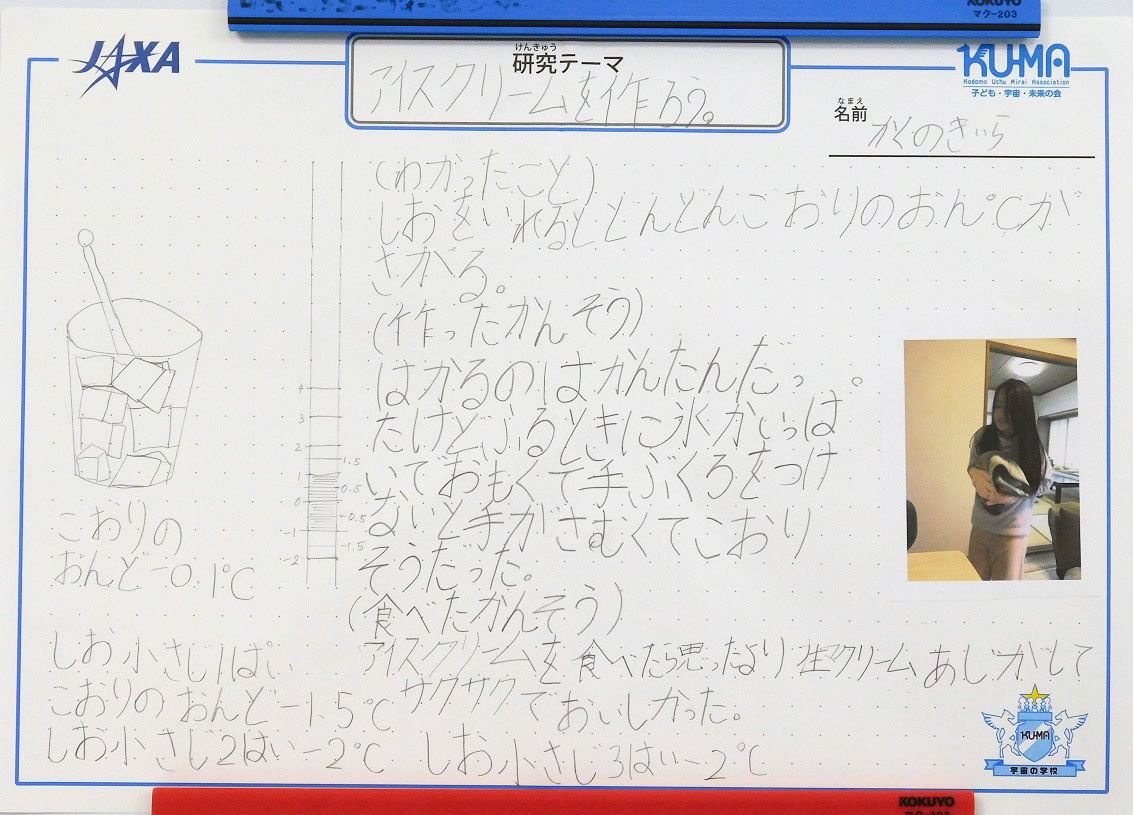 KOKUYO
マク-203
JAXA
けんきゅう
研究テーマ
アイスクリームを作ろう。
KU-MA
Kodomo Uchu Mirai Association
子ども・宇宙・未来の会
なまえ
名前
かくのきいら
(わかったこと)
しおをいれるとどんどんこおりのおん℃が
さがる。
(作ったかんそう)
はかるのはかんたんだっ。
たけどふるときに氷がいっぱ
いでおもくて手ぶくろをつけ
ないと手がさむくてこおり
そうだった。
(食べたかんそう)
アイスクリームを食べたら思ったより生クリームあじがして
サクサクでおいしかった。
4
3
2
1.5
1
0.5
0
-0.5
-1
-1.5
-2
こおりの
おんど-0.1℃
しお小さじ1ぱい
こおりのおんど-1.5℃
しお小さじ2はい-2℃
しお小さじ3ばい-2℃
KU-MA
宇宙の学校
KOKUYO
マク-203